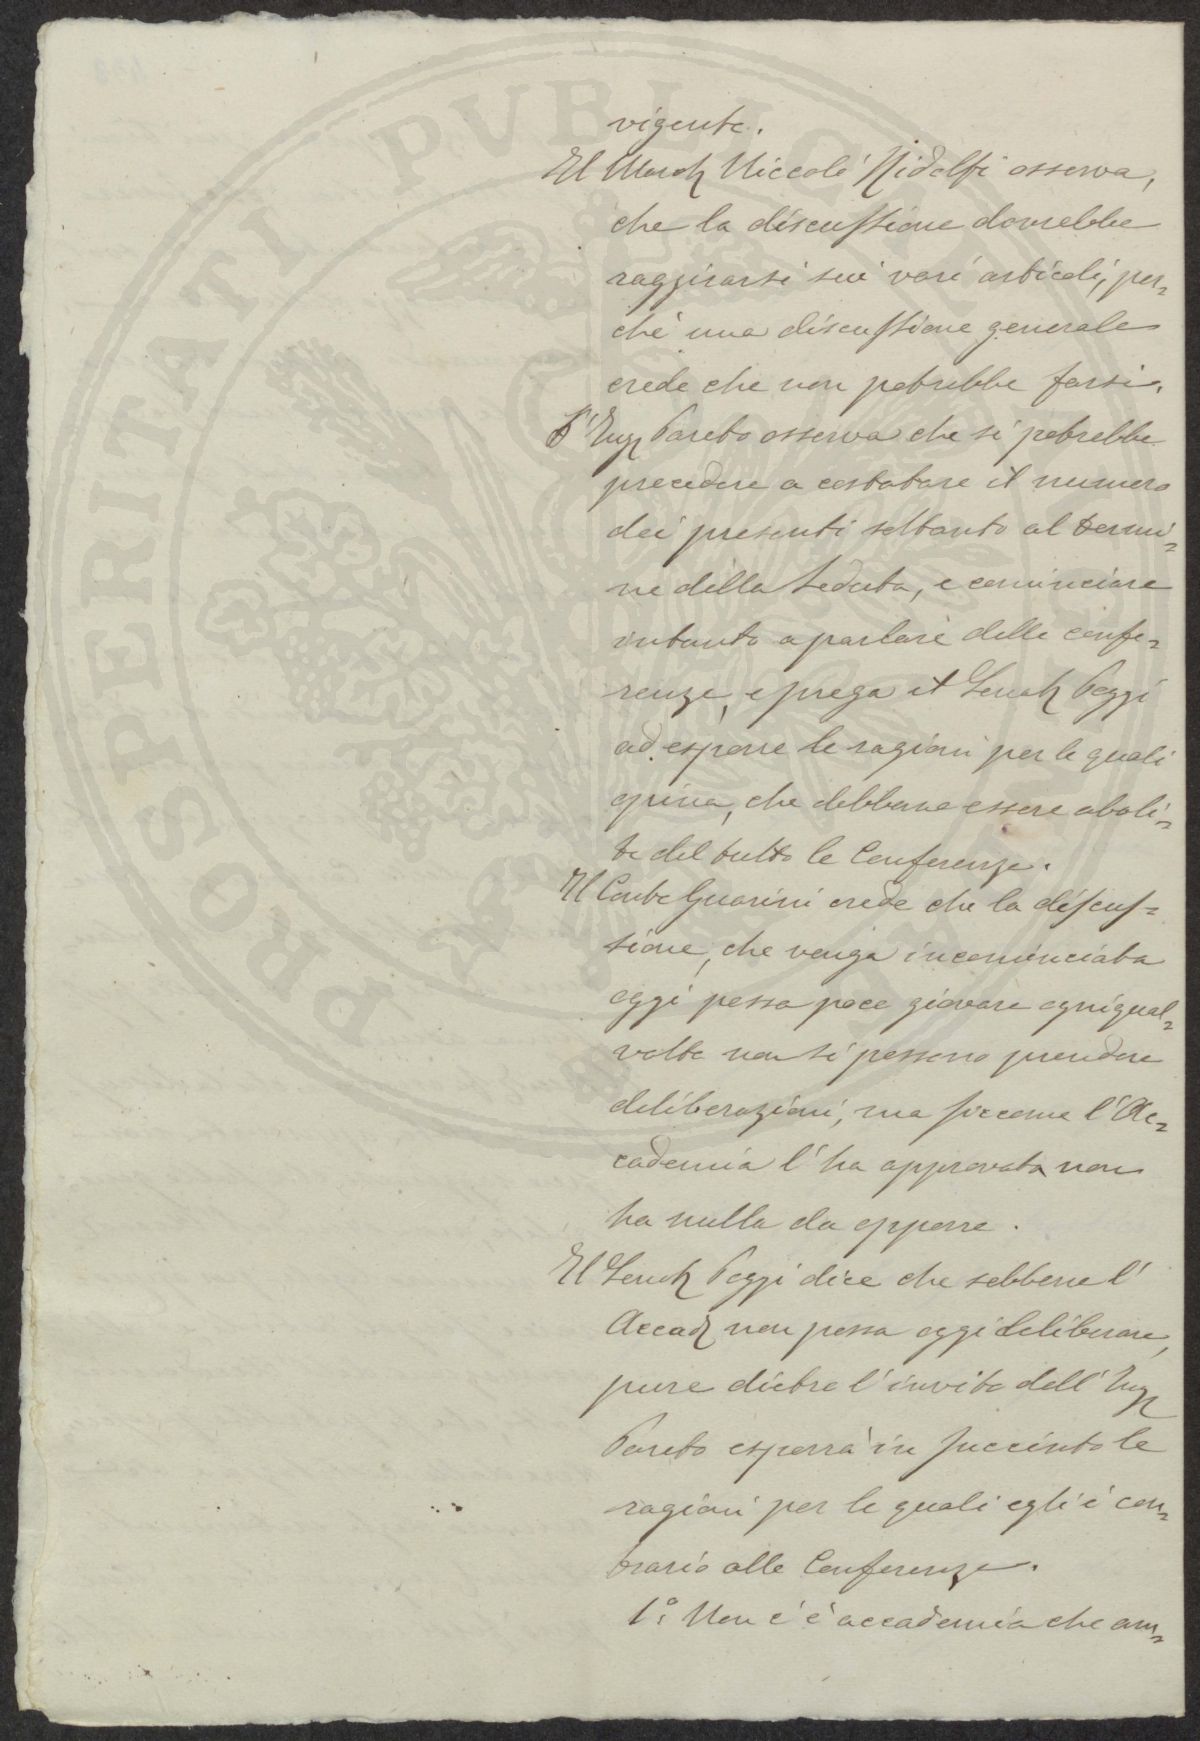 PROSPERITATI PVBLICAE AVGENDAE
vigente.
Il March Niccolò Ridolfi osserva,
che la discussione dovrebbe
raggirarsi sui vari articoli, per=
chè una discussione generale
crede che non potrebbe farsi.
L'Ing Pareto osserva che si potrebbe
procedere a costatare il numero
dei presenti soltanto al termi=
ne della seduta, e cominciare
intanto a parlare delle confe=
renze, e prega il Senat Poggi
ad esporre le ragioni per le quali
opina, che debbano essere aboli=
te del tutto le Conferenze.
Il Conte Guarini crede che la discus=
sione, che venga incominciata
oggi possa poco giovare ogniqual=
volta non si possono prendere
deliberazioni, ma siccome l'Ac=
cademia l'ha approvata non
ha nulla da opporre.
Il Senat Poggi dice che sebbene l'
Accad non possa oggi deliberare,
pure dietro l'invito dell'Ing
Pareto esporrà in succinto le
ragioni per le quali egli è con=
trario alle Conferenze.
1°: Non c'è accademia che am=